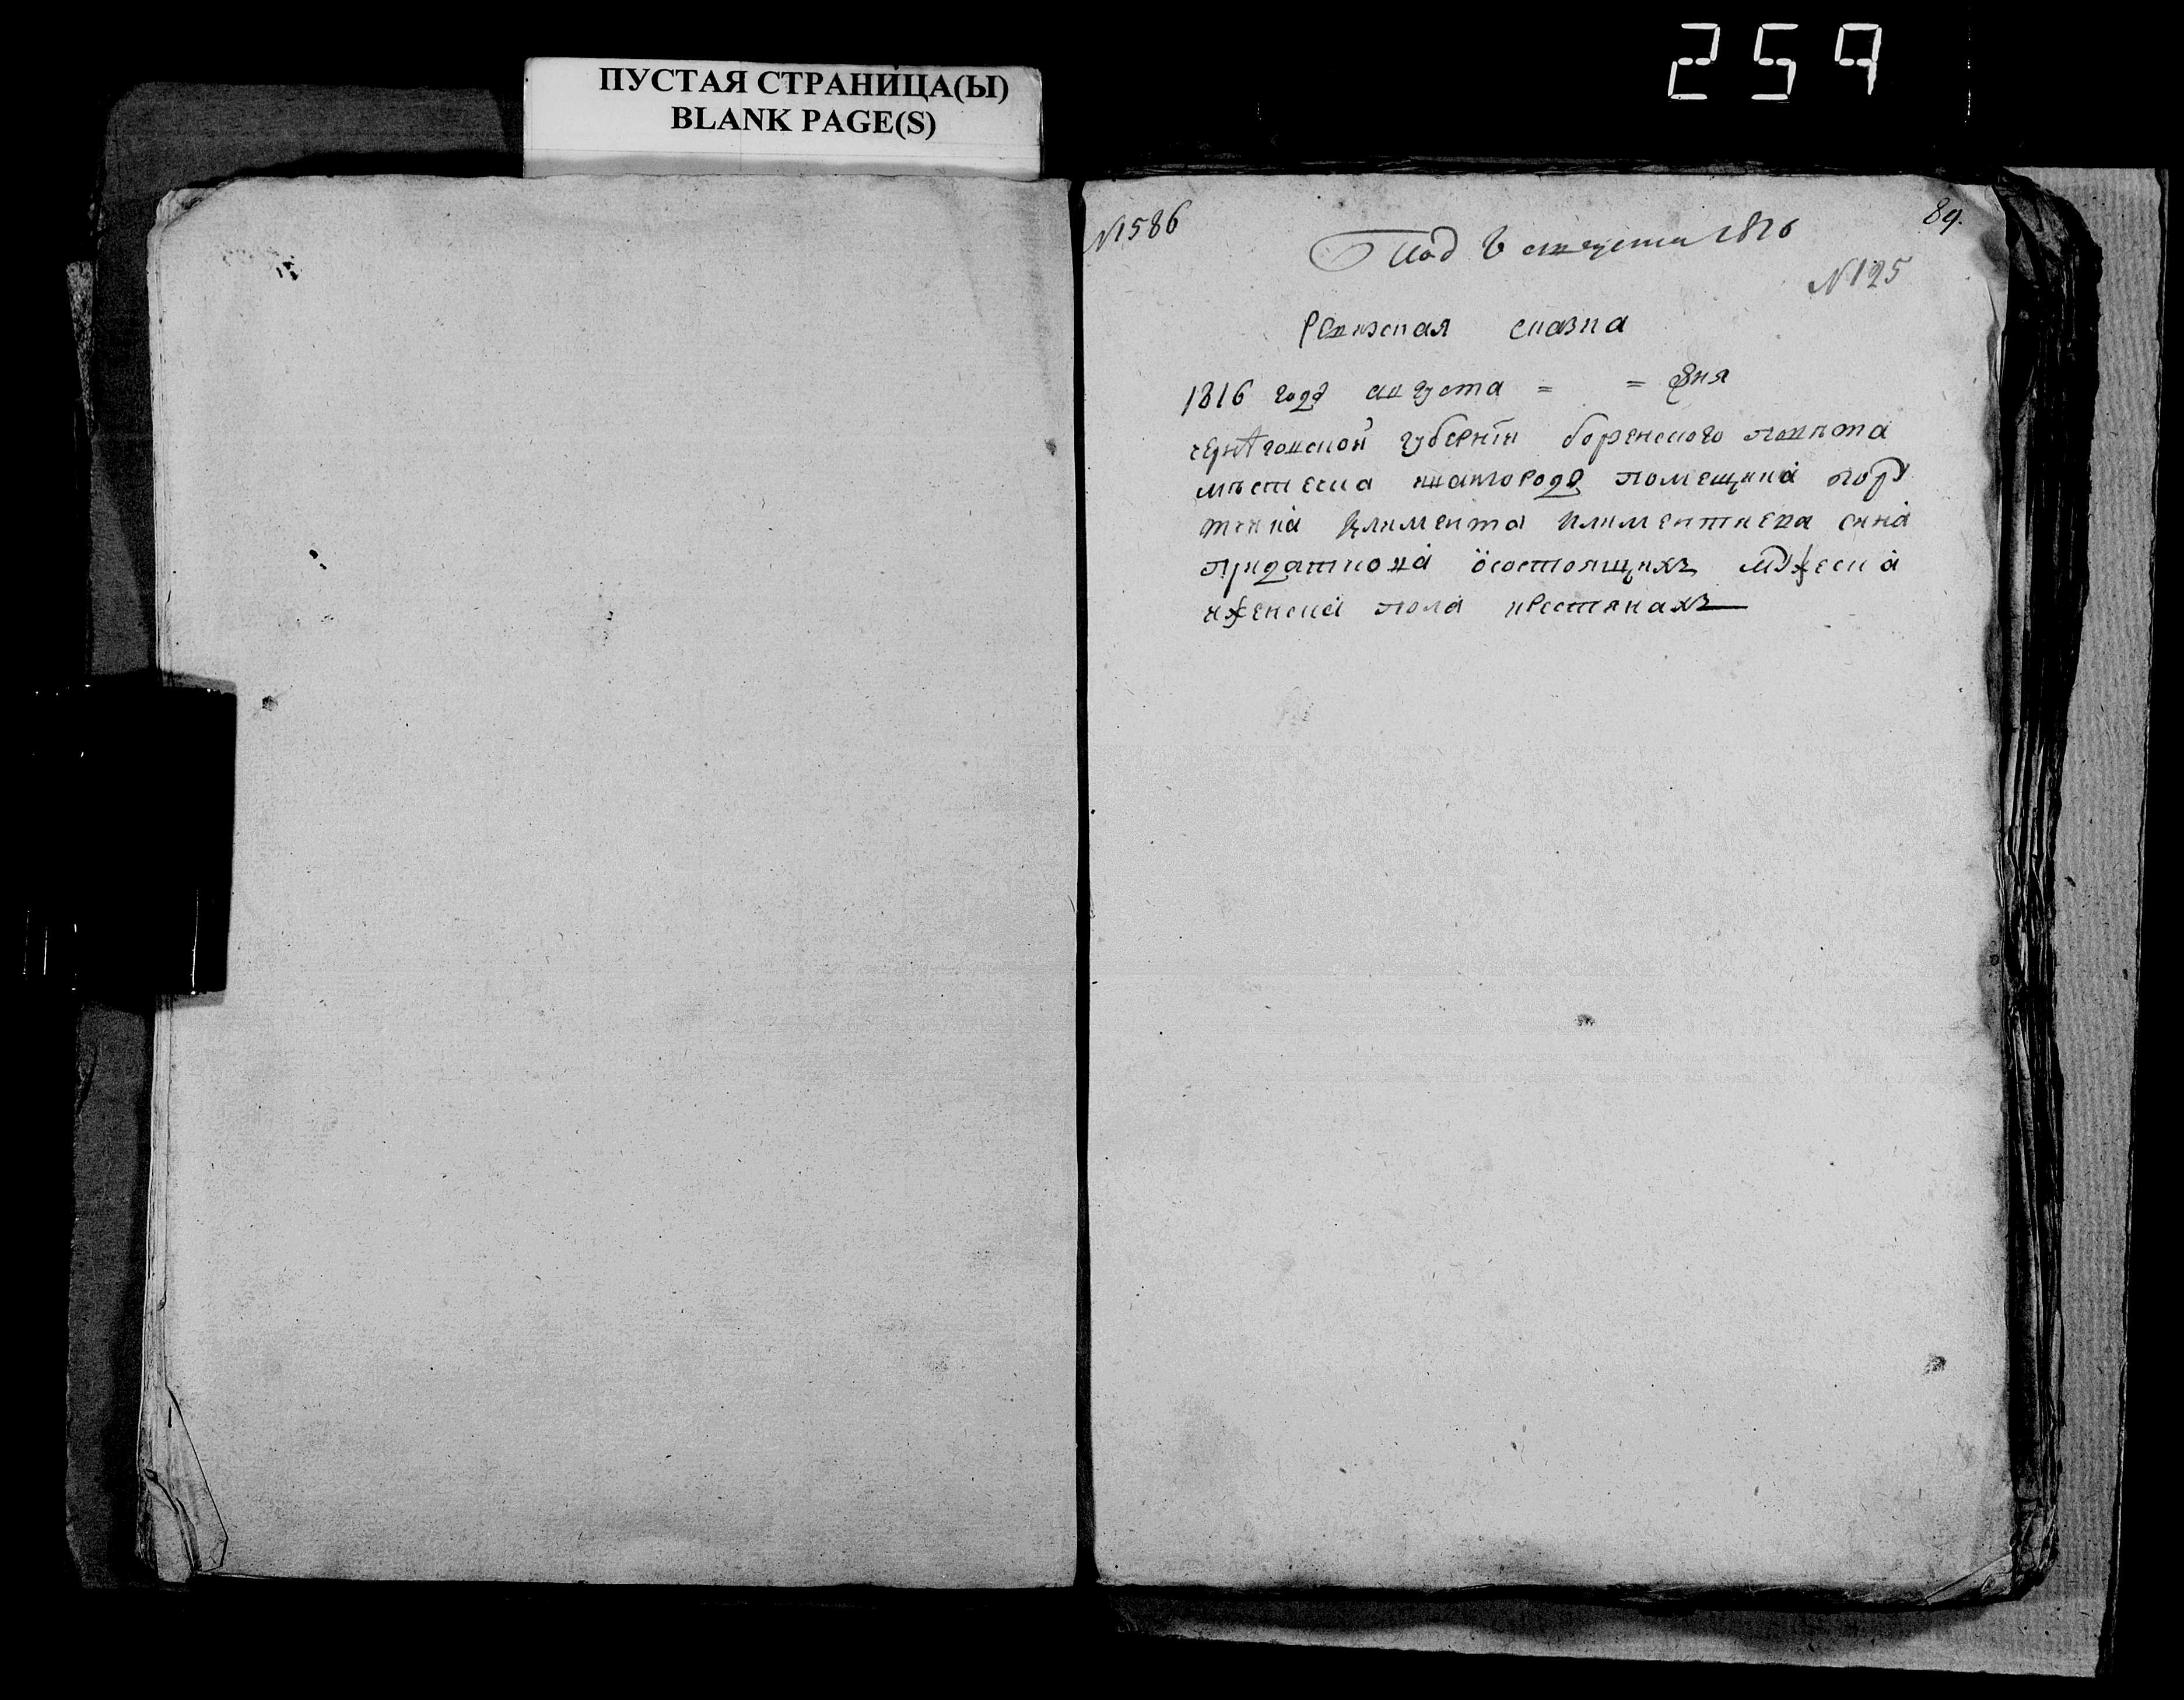 259
ПУСТАЯ СТРАНИЦА(Ы)
BLANK PAGE(S)
№ 586
89.
Под 6 августа 1816
№ 125
Ревизская сказка
1816 году августа = = дня
черниговской губернїи борзенского повѣта
мѣстечка ивангороду помещика пору
тчика климента климентиева сина
придаткова ŏсостоящихъ мужеска
иженска пола крестянахъ